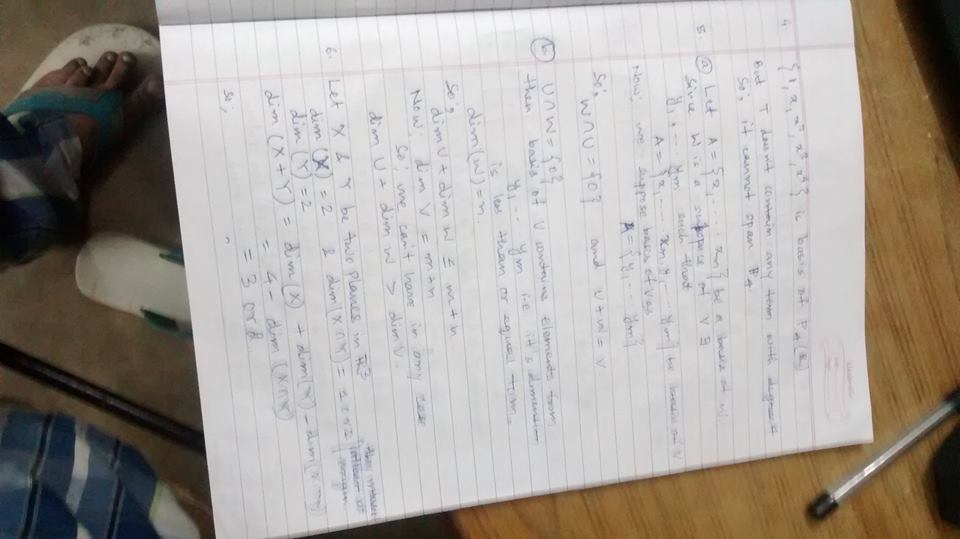 4.
{1, x, x², x³, x⁴} is basis of P₄(R)
But T doesn't contain any term with degree
So, it cannot span P₄.
5. (a) Let A = {x, ... xₙ} be a basis of W.
Since W is a of V ∃
y₁, ... yₘ such that
A = {x, ... xₙ, y₁, ... yₘ} be basis of V
Now, we suppose basis of U as
A = {y₁, ... yₘ}
So, W ∩ U = {0} and U + W = V
(b) U ∩ W = {0}
then basis of U contains elements from
y₁, ... yₘ i.e. it's dimension
is less than or equal to m.
dim(W) = n.
So, dim U + dim W ≤ m + n
Now, dim V = m + n
So, we can't have in any case
dim U + dim W > dim V.
6. Let X & Y be two planes in R³
dim (X) = 2 & dim (X ∩ Y) = 1 or 2
dim (Y) = 2
dim (X + Y) = dim (X) + dim (Y) - dim (X ∩ Y)
= 4 - dim (X ∩ Y)
= 3 or 2.
So,